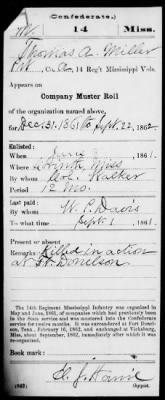 (Confederate.)
14 Miss.
Thomas A. Miller
Pvt, Co. 14 Reg't Mississippi Vols.
Appears on
Company Muster Roll
of the organization named above,
for Dec 31, 1861 to Sept. 22, 1862
Enlisted:
When June 1861.
Where Corinth Miss
By whom Walker
Period 12 Mo.
Last paid:
By whom W. L. Davis
To what time Sept. 1, 1861.
Present or absent
Remarks: Killed in action
at Ft. Donelson
The 14th Regiment Mississippi Infantry was organized in
May and June, 1861, of companies which had previously been
in the State service and was mustered into the Confederate
service for twelve months. It was surrendered at Fort Donel-
son, Tenn., February 16, 1862, and exchanged at Vicksburg,
Miss., about September, 1862, immediately after which it was
re-organized.
Book mark:
(642)